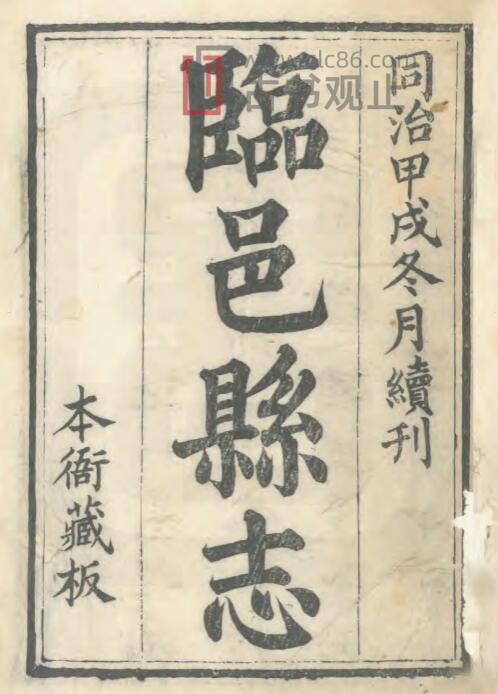 同治甲戌冬月續刊
臨邑縣志
本衙藏板
古书观止